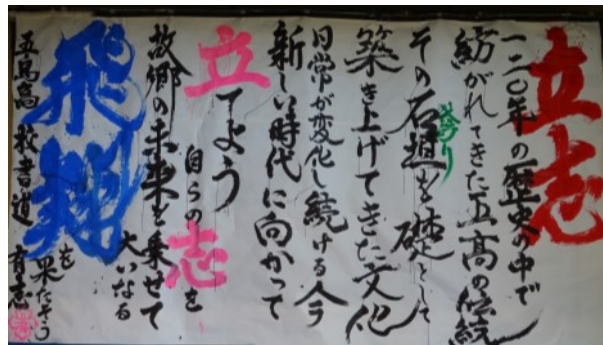 立志
一二〇年の歴史の中で
紡がれてきた五高の伝統
誇り
その石垣を礎として
築き上げてきた文化
日常が変化し続ける今
新しい時代に向かって
立てよう
自らの志を
故郷の未来を乗せて
大いなる
飛翔
を果たそう
五島高校書道有志